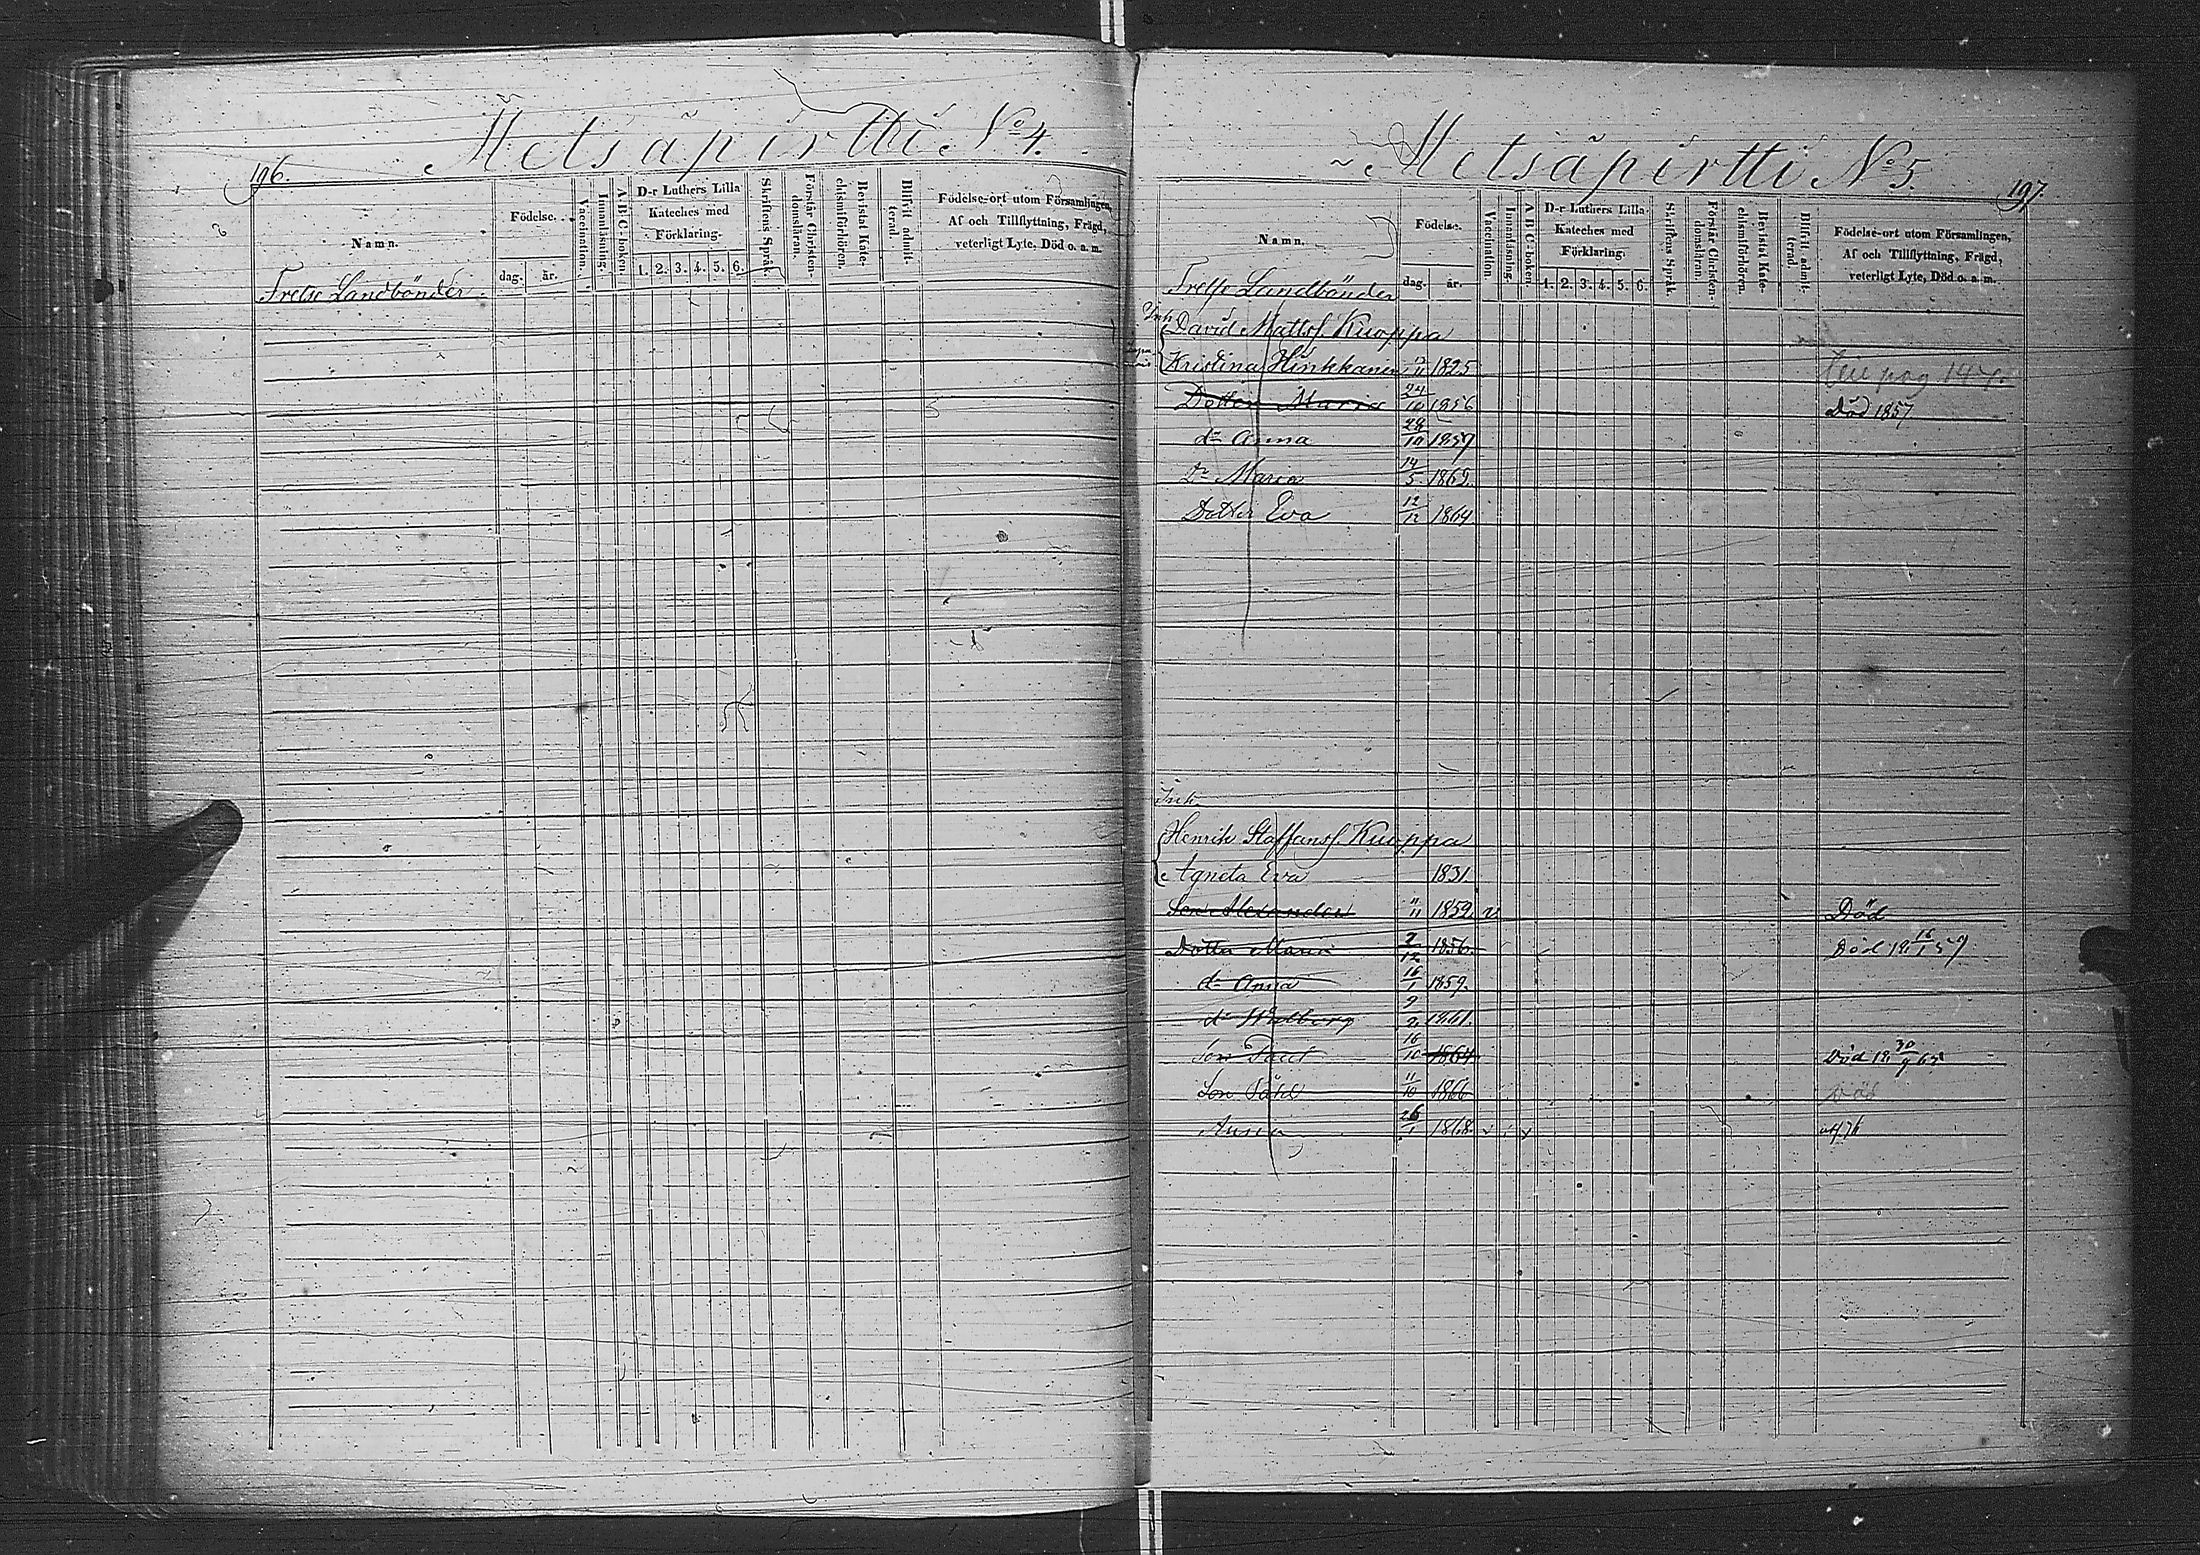 Metsäpirtti No 4.
196.
Namn.
Födelse.
dag.
år.
Vaccination.
Innanläsning.
A B C-boken.
D-r Luthers Lilla
Kateches med
Förklaring.
1. 2. 3. 4. 5. 6.
Skriftens Språk.
Förstår Christen-
domsläran.
Bevistat Kate-
chismiförhören.
Blifvit admit-
terad.
Födelse-ort utom Församlingen,
Af och Tillflyttning, Frägd,
veterligt Lyte, Död o. a. m.
Frelse Landbönder
Metsäpirtti No 5.
197.
Namn.
Födelse.
dag.
år.
Vaccination.
Innanläsning.
A B C-boken.
D-r Luthers Lilla
Kateches med
Förklaring.
1. 2. 3. 4. 5. 6.
Skriftens Språk.
Förstår Christen-
domsläran.
Bevistat Kate-
chismiförhören.
Blifvit admit-
terad.
Födelse-ort utom Församlingen,
Af och Tillflyttning, Frägd,
veterligt Lyte, Död o. a. m.
Frelse Landbönder
Inh
David Matts. Kuoppa
Kristina Hinkkanen 1825
Dotter Maria 24/10 1856 Död 1857
do Anna 28/10 1857
Do Maria 14/5 1862
Dotter Eva 12/12 1864
Inh
Henrik Staffans. Kuoppa
Agneta Eva 1831
Son Alexander 1852 Död
Dotter Maria 2/12 1856 Död 18 16/1 57
do Anna 16/1 1859
do Walborg 9/2 1861
Son Paul 16/10 1864 Död 18 30/9 65
Son Påhl 11/10 1866 Död
Anna 26/1 1868